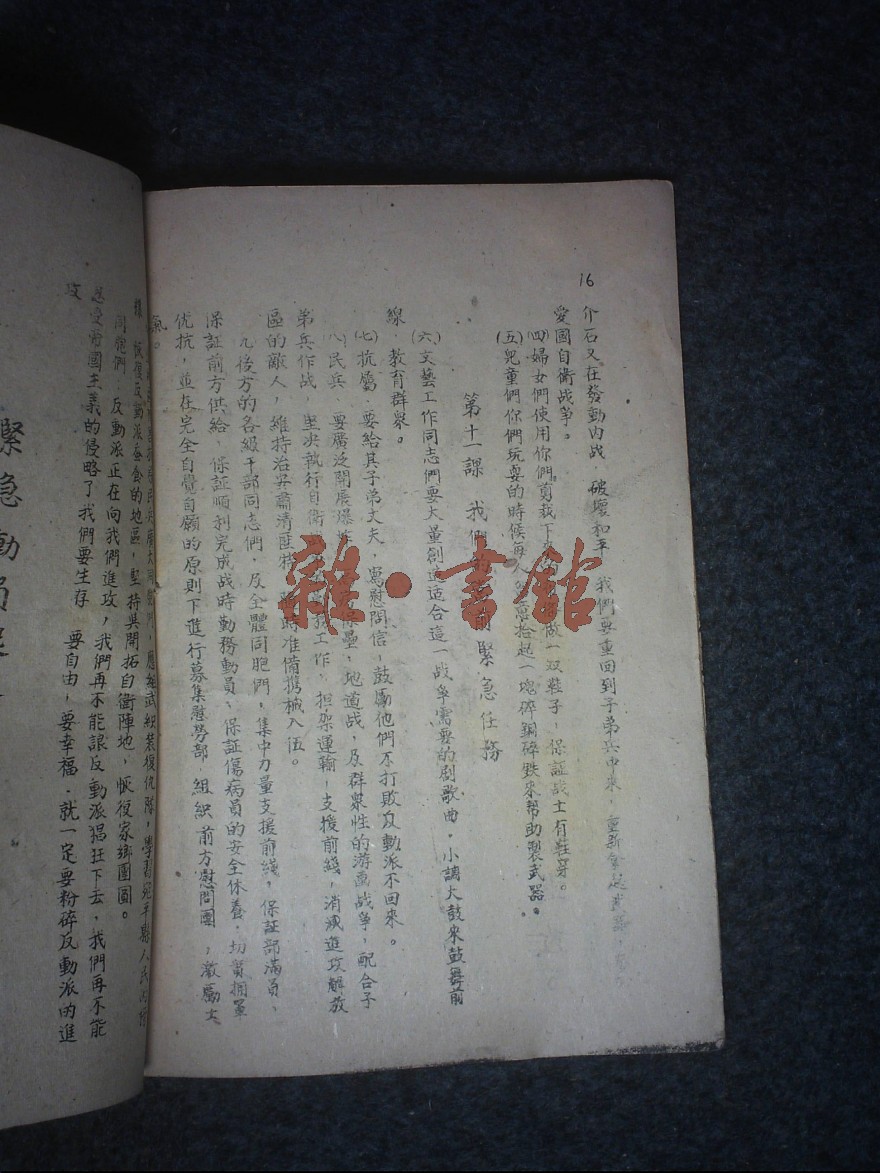 16
介石又在發動內战 破壞和平 我們要重回到子弟兵中來，重新拿起武器，
愛國自衛战爭。
(四)婦女們使用你們剪裁下 做一双鞋子，保証战士有鞋穿。
(五)兒童們你們玩耍的時候每人 意拾起一塊碎銅碎鉄來帮助製武器。
第十一課 我們 前緊急任務
(六)文藝工作同志們要大量創造适合這一战爭需要的剧歌曲，小調大鼓來鼓舞前
線，教育群衆。
(七)抗屬，要給其子弟丈夫，寫慰問信，鼓勵他們不打敗反動派不回來。
八)民兵 要廣泛開展爆 壘，地道战，及群衆性的游擊战爭，配合子
弟兵作战 坚决執行自衛 工作，担架運輸，支援前綫，消滅進攻解放
區的敵人，維持治安肅清匪特 時准備携械入伍。
九 後方的各級干部同志們，及全體同胞們，集中力量支援前綫，保証部滿員，
保証前方供給，保証順利完成战時勤務動員，保証傷病員的安全休養，切實拥軍
优抗，並在完全自覺自願的原則下進行募集慰勞部，組織前方慰問團，激勵士
氣。
武組装復仇隊，學習宛平縣人民
反動派蚕食的地區，堅持與開拓自衛陣地，恢復家鄉團圓。
同胞們 反動派正在向我們進攻，我們再不能讓反動派猖狂下去，我們再不能
忍受帝國主義的侵略了我們要生存 要自由，要幸福．就一定要粉碎反動派的進
攻
緊急動員起
雜·書館